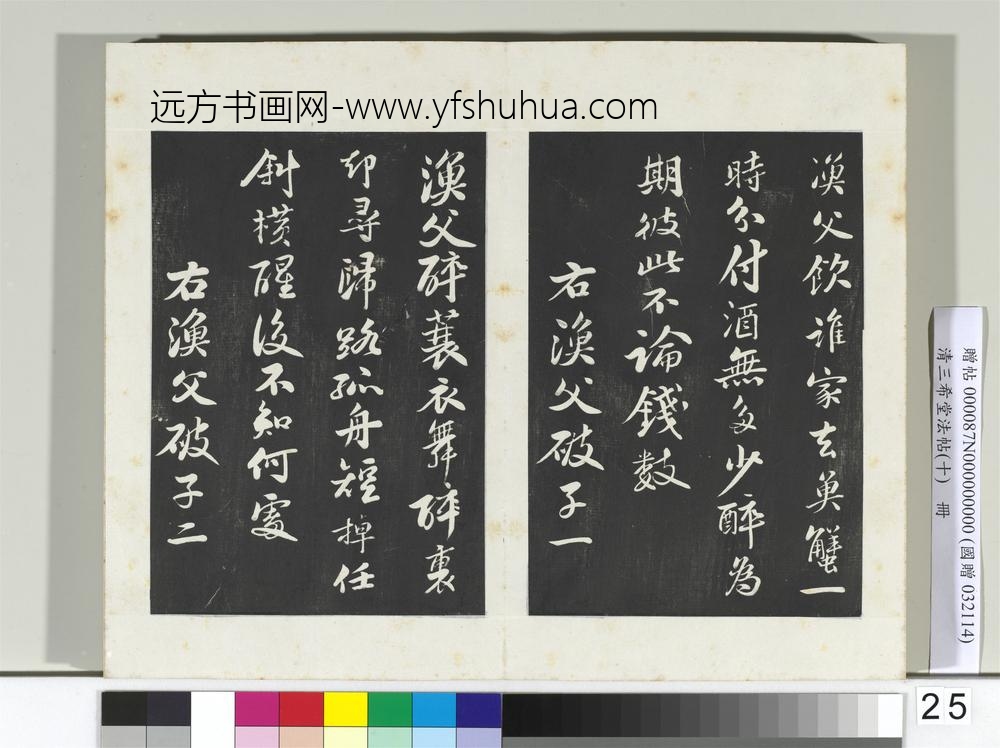 远方书画网-www.yfshuhua.com
漁父飲誰家去魚蟹一
時分付酒無多少醉為
期彼此不論錢數
右漁父破子一
漁父醉蓑衣舞醉裏
却尋歸路孤舟短棹任
斜橫醒後不知何處
右漁父破子二
贈帖 000087N000000000 (國贈 032114)
清三希堂法帖(十) 冊
25